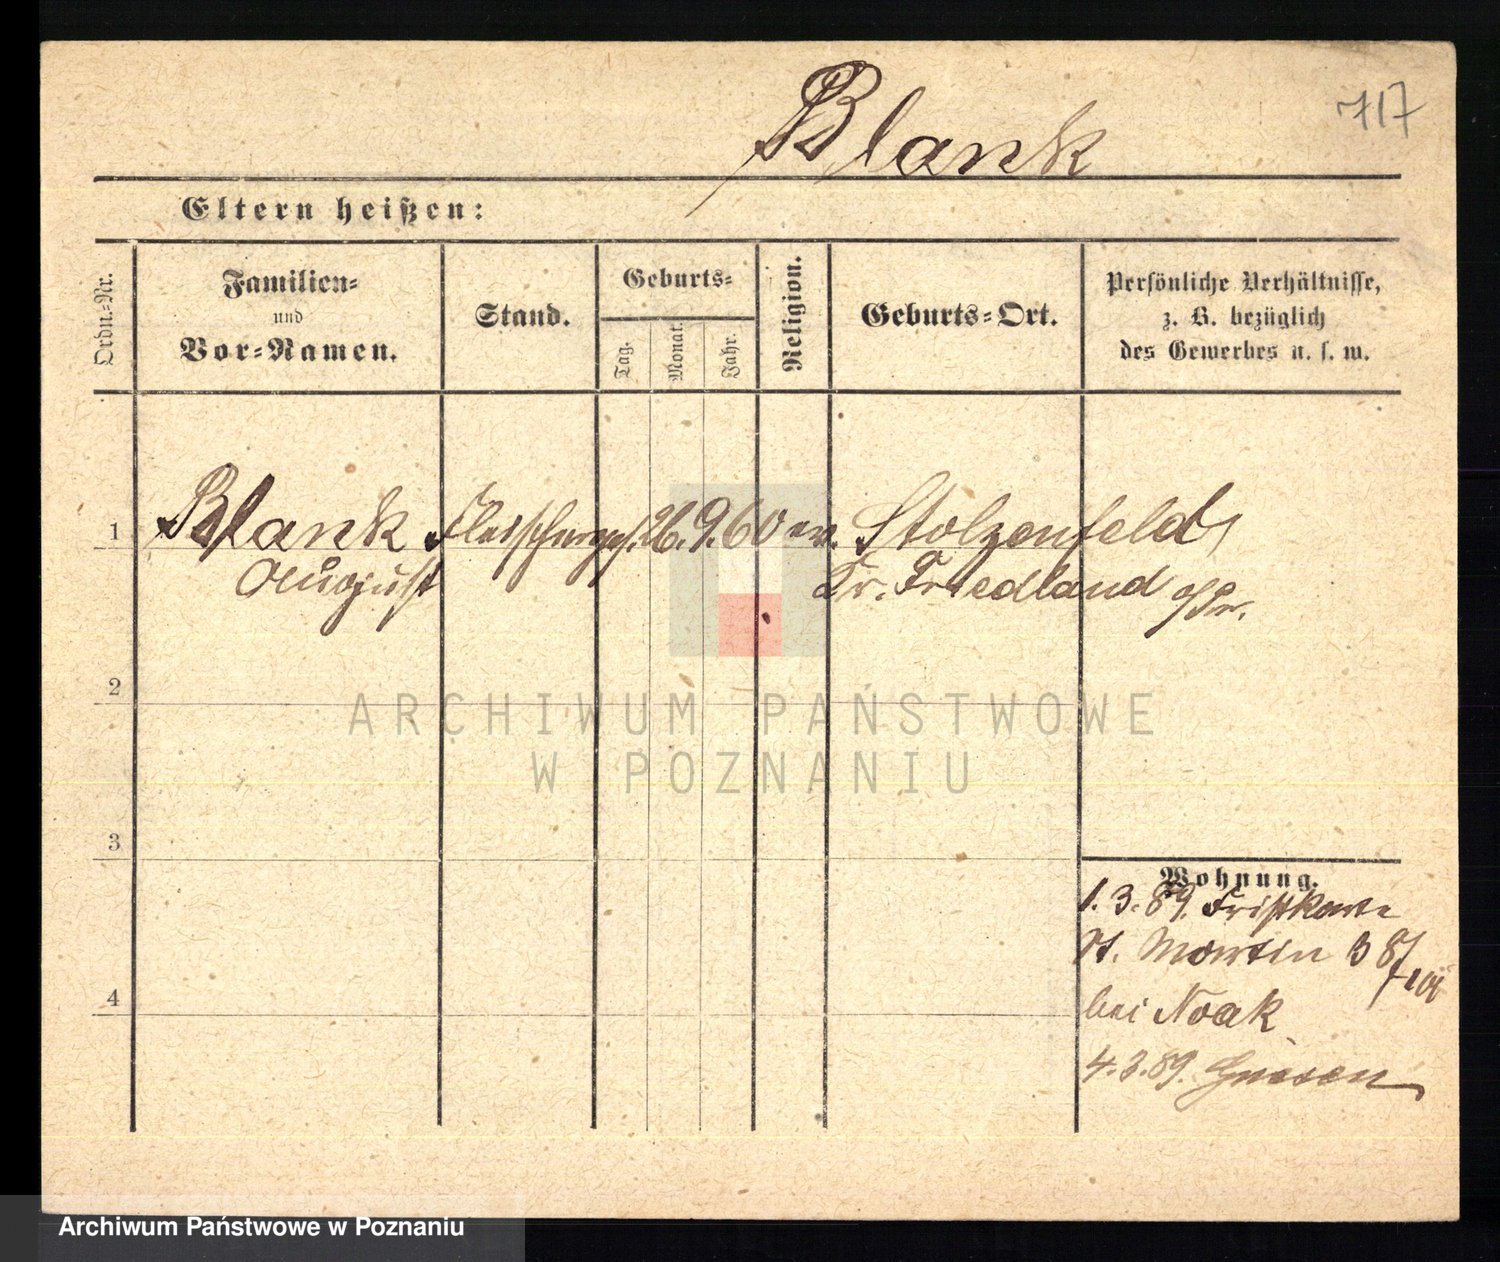 717
Blank
Eltern heißen:
Ordn.-Nr.
Familien-
und
Vor-Namen.
Stand.
Geburts-
Tag.
Monat.
Jahr.
Religion.
Geburts-Ort.
Persönliche Verhältnisse,
z. B. bezüglich
des Gewerbes u. s. w.
1 Blank Fleischerges. 26. 9. 60 ev. Stolzenfeld,
August Kr. Friedland o/Pr.
2
3
4
Wohnung.
1. 3. 89. Fristkarte
St. Martin 38/
bei Noak
4. 3. 89. Gnesen
ARCHIWUM PAŃSTWOWE
W POZNANIU
Archiwum Państwowe w Poznaniu